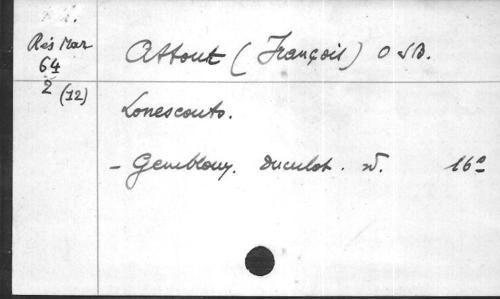 Rés Mar
64
2 (12)
Attout (François) O S B.
Lonescouts.
- Gembloux. Duculot. sd. 16°